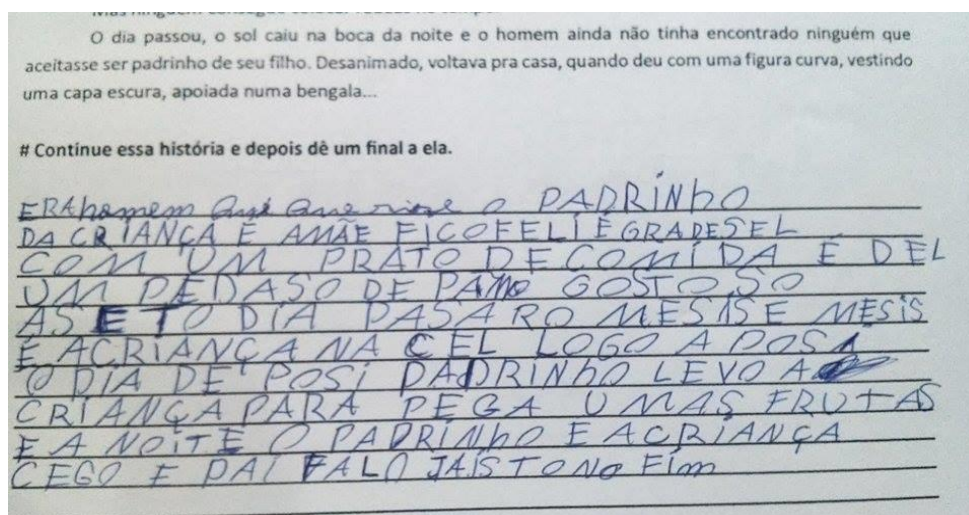 O dia passou, o sol caiu na boca da noite e o homem ainda não tinha encontrado ninguém que
aceitasse ser padrinho de seu filho. Desanimado, voltava pra casa, quando deu com uma figura curva, vestindo
uma capa escura, apoiada numa bengala...
# Continue essa história e depois dê um final a ela.
ERA homem que o PADRINhO
DA CRIANÇA E AMÃE FICOFELIEGRADESEL
COM UM PRATO DE COMIDA E DEL
UM PEDASO DE GOSTOSO
AS E TO DIA PASARO MESIS E MESIS
E ACRIANÇA NA CEL LOGO A POSA
O DIA DE POSI PADRINhO LEVO A
CRIANÇA PARA PEGA UMAS FRUTAS
E A NOITE O PADRINhO E ACRIANÇA
CEGO E PAI FALO JAISTONO Fim